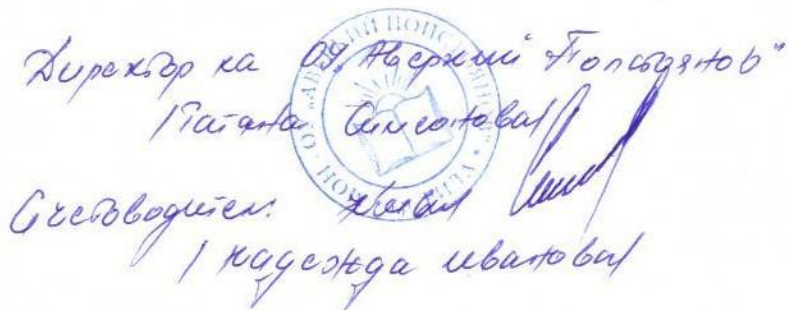 Директор на ОУ „Аверкий Попстоянов"
/Татяна Симеонова/
Счетоводител:
/Надежда Иванова/